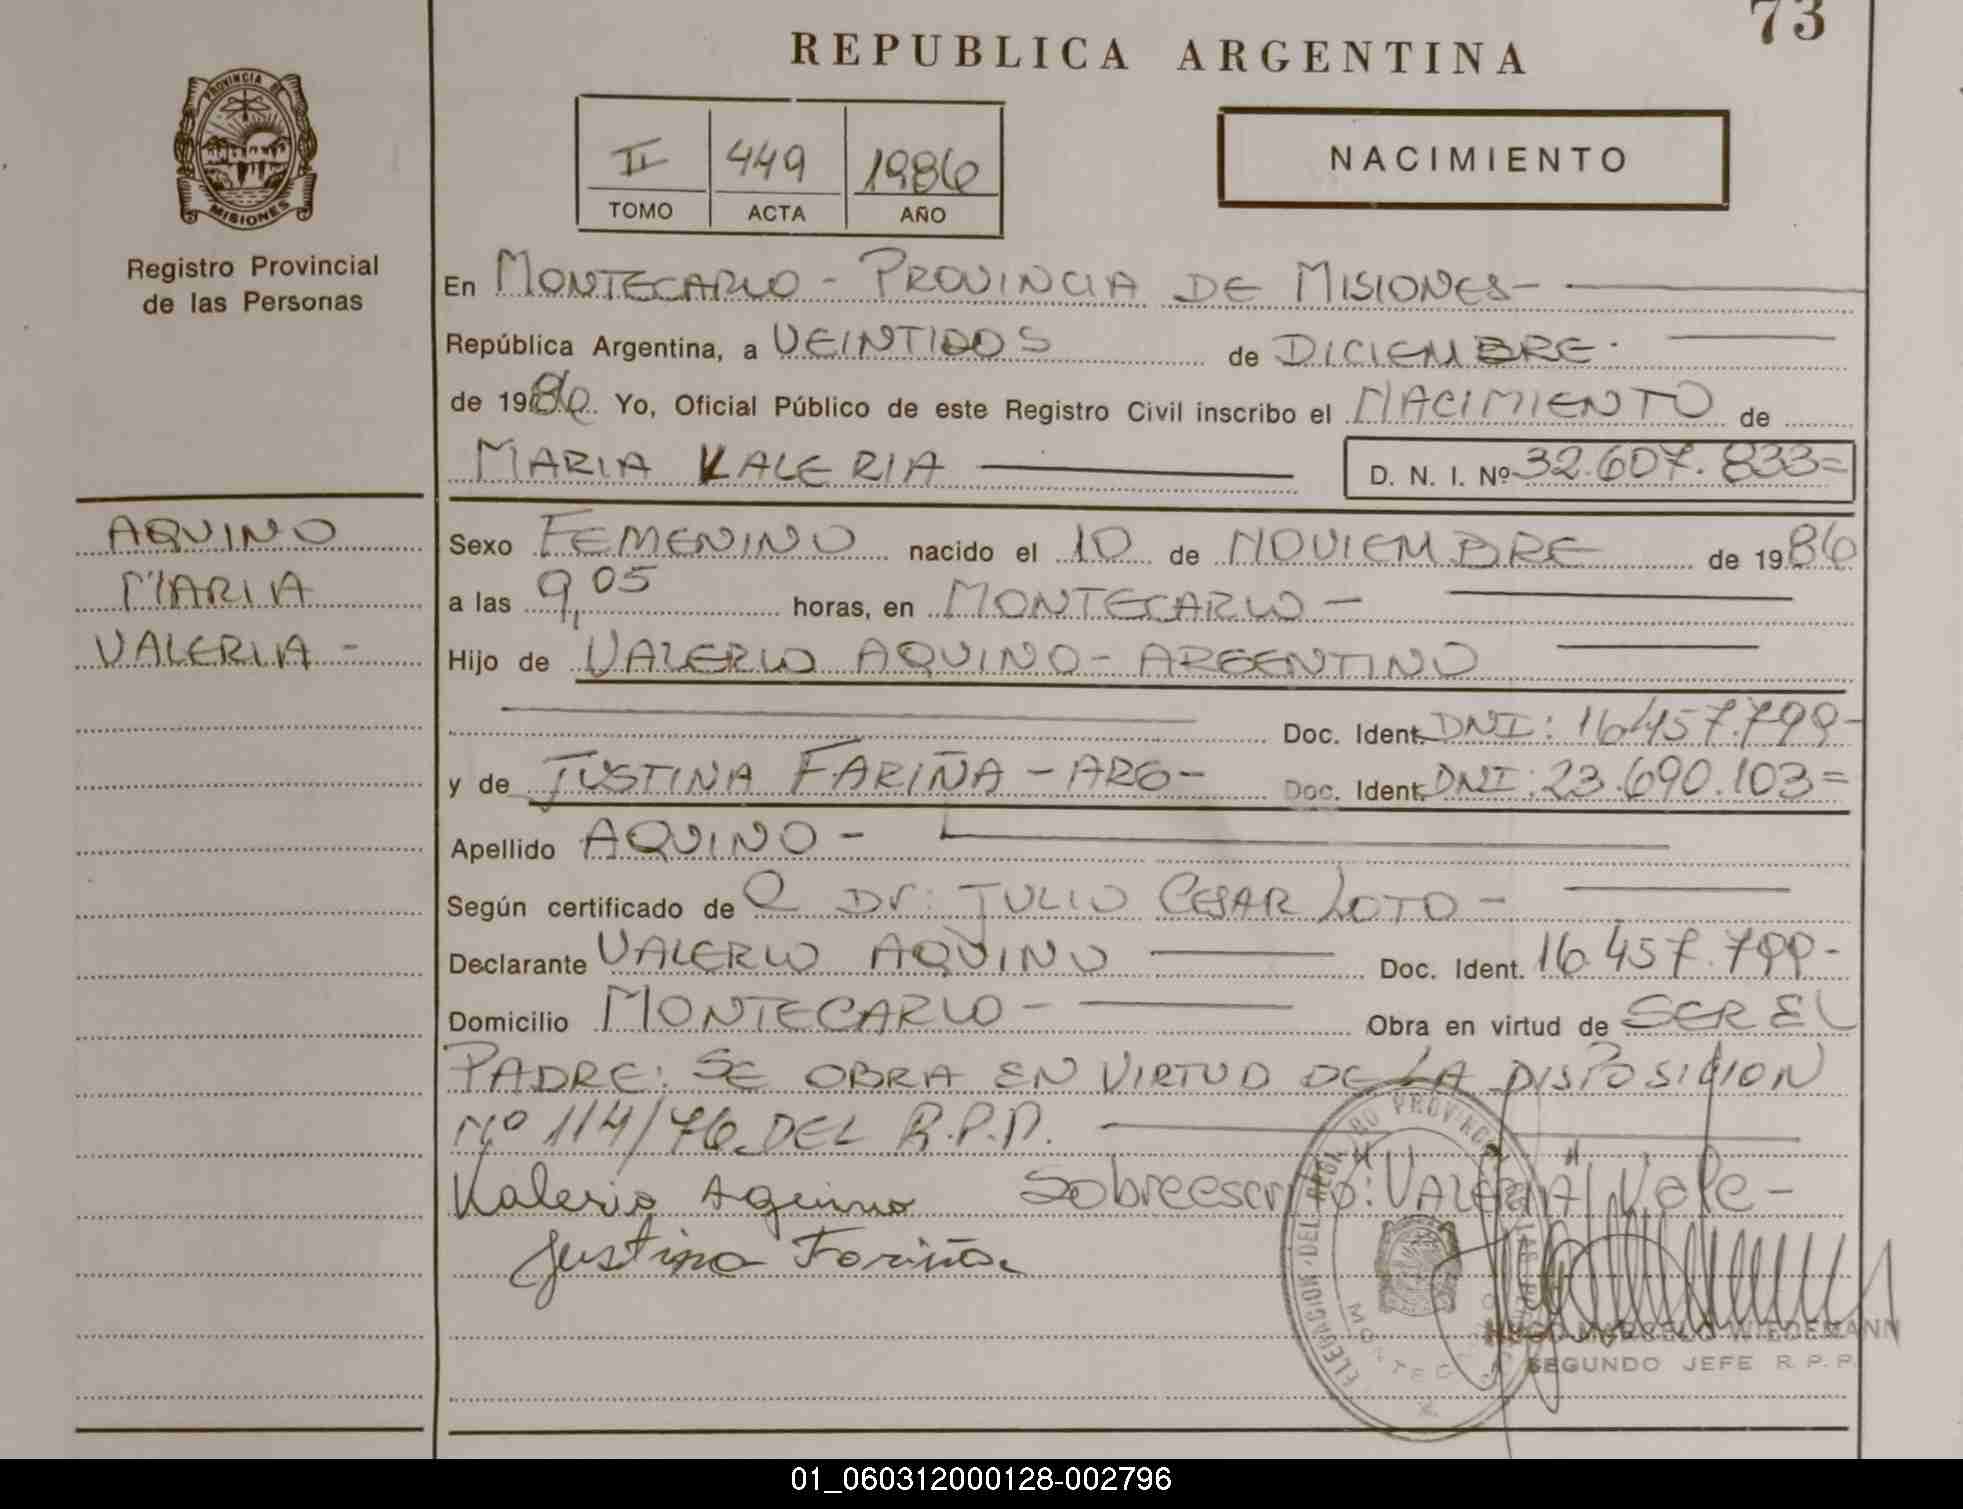 73
REPUBLICA ARGENTINA
PROVINCIA DE
MISIONES
Registro Provincial
de las Personas
II 449 1986
TOMO ACTA AÑO
NACIMIENTO
En MONTECARLO - PROVINCIA DE MISIONES -
República Argentina, a VEINTIDOS de DICIEMBRE.
de 1986. Yo, Oficial Público de este Registro Civil inscribo el NACIMIENTO de
MARIA VALERIA D. N. I. Nº 32.607.833=
AQUINO
MARIA
VALERIA -
Sexo FEMENINO nacido el 10 de NOVIEMBRE de 1986
a las 9,05 horas, en MONTECARLO -
Hijo de VALERIO AQUINO - ARGENTINO
Doc. Ident. DNI: 16.457.799-
y de JUSTINA FARIÑA - ARG - Doc. Ident. DNI: 23.690.103=
Apellido AQUINO -
Según certificado de Dr: JULIO CESAR LOTO -
Declarante VALERIO AQUINO Doc. Ident. 16.457.799-
Domicilio MONTECARLO - Obra en virtud de SER EL
PADRE: SE OBRA EN VIRTUD DE LA DISPOSICION
Nº 114/76 DEL R.P.P.
Valerio Aquino Sobreescrito: "VALERIA" Vale -
Justina Fariña
HUGO MARCELO WIEDEMANN
SEGUNDO JEFE R. P. P.
01_060312000128-002796